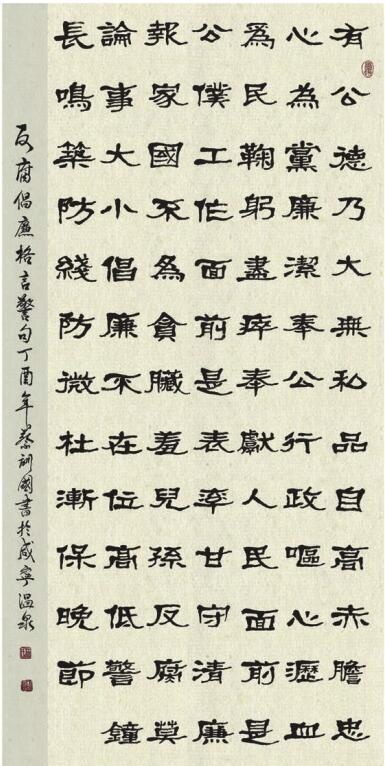 有公德乃大無私品自高赤膽忠
心為黨廉潔奉公行政嘔心瀝血
爲民鞠躬盡瘁奉獻人民面前是
公僕工作面前是表率甘守清廉
報家國不為貪贓羞兒孫反腐莫
論事大小倡廉不在位高低警鐘
長鳴築防綫防微杜漸保晚節
反腐倡廉格言警句丁酉年蔡訓國書於咸寧温泉